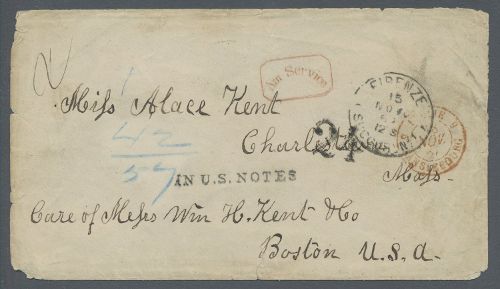 Am Service
FIRENZE
15
NOV
12 S
Miss Alace Kent
Charlest
Mass.
21
42
57
IN U.S. NOTES
Care of Mess Wm H. Kent & Co
Boston U.S.A.